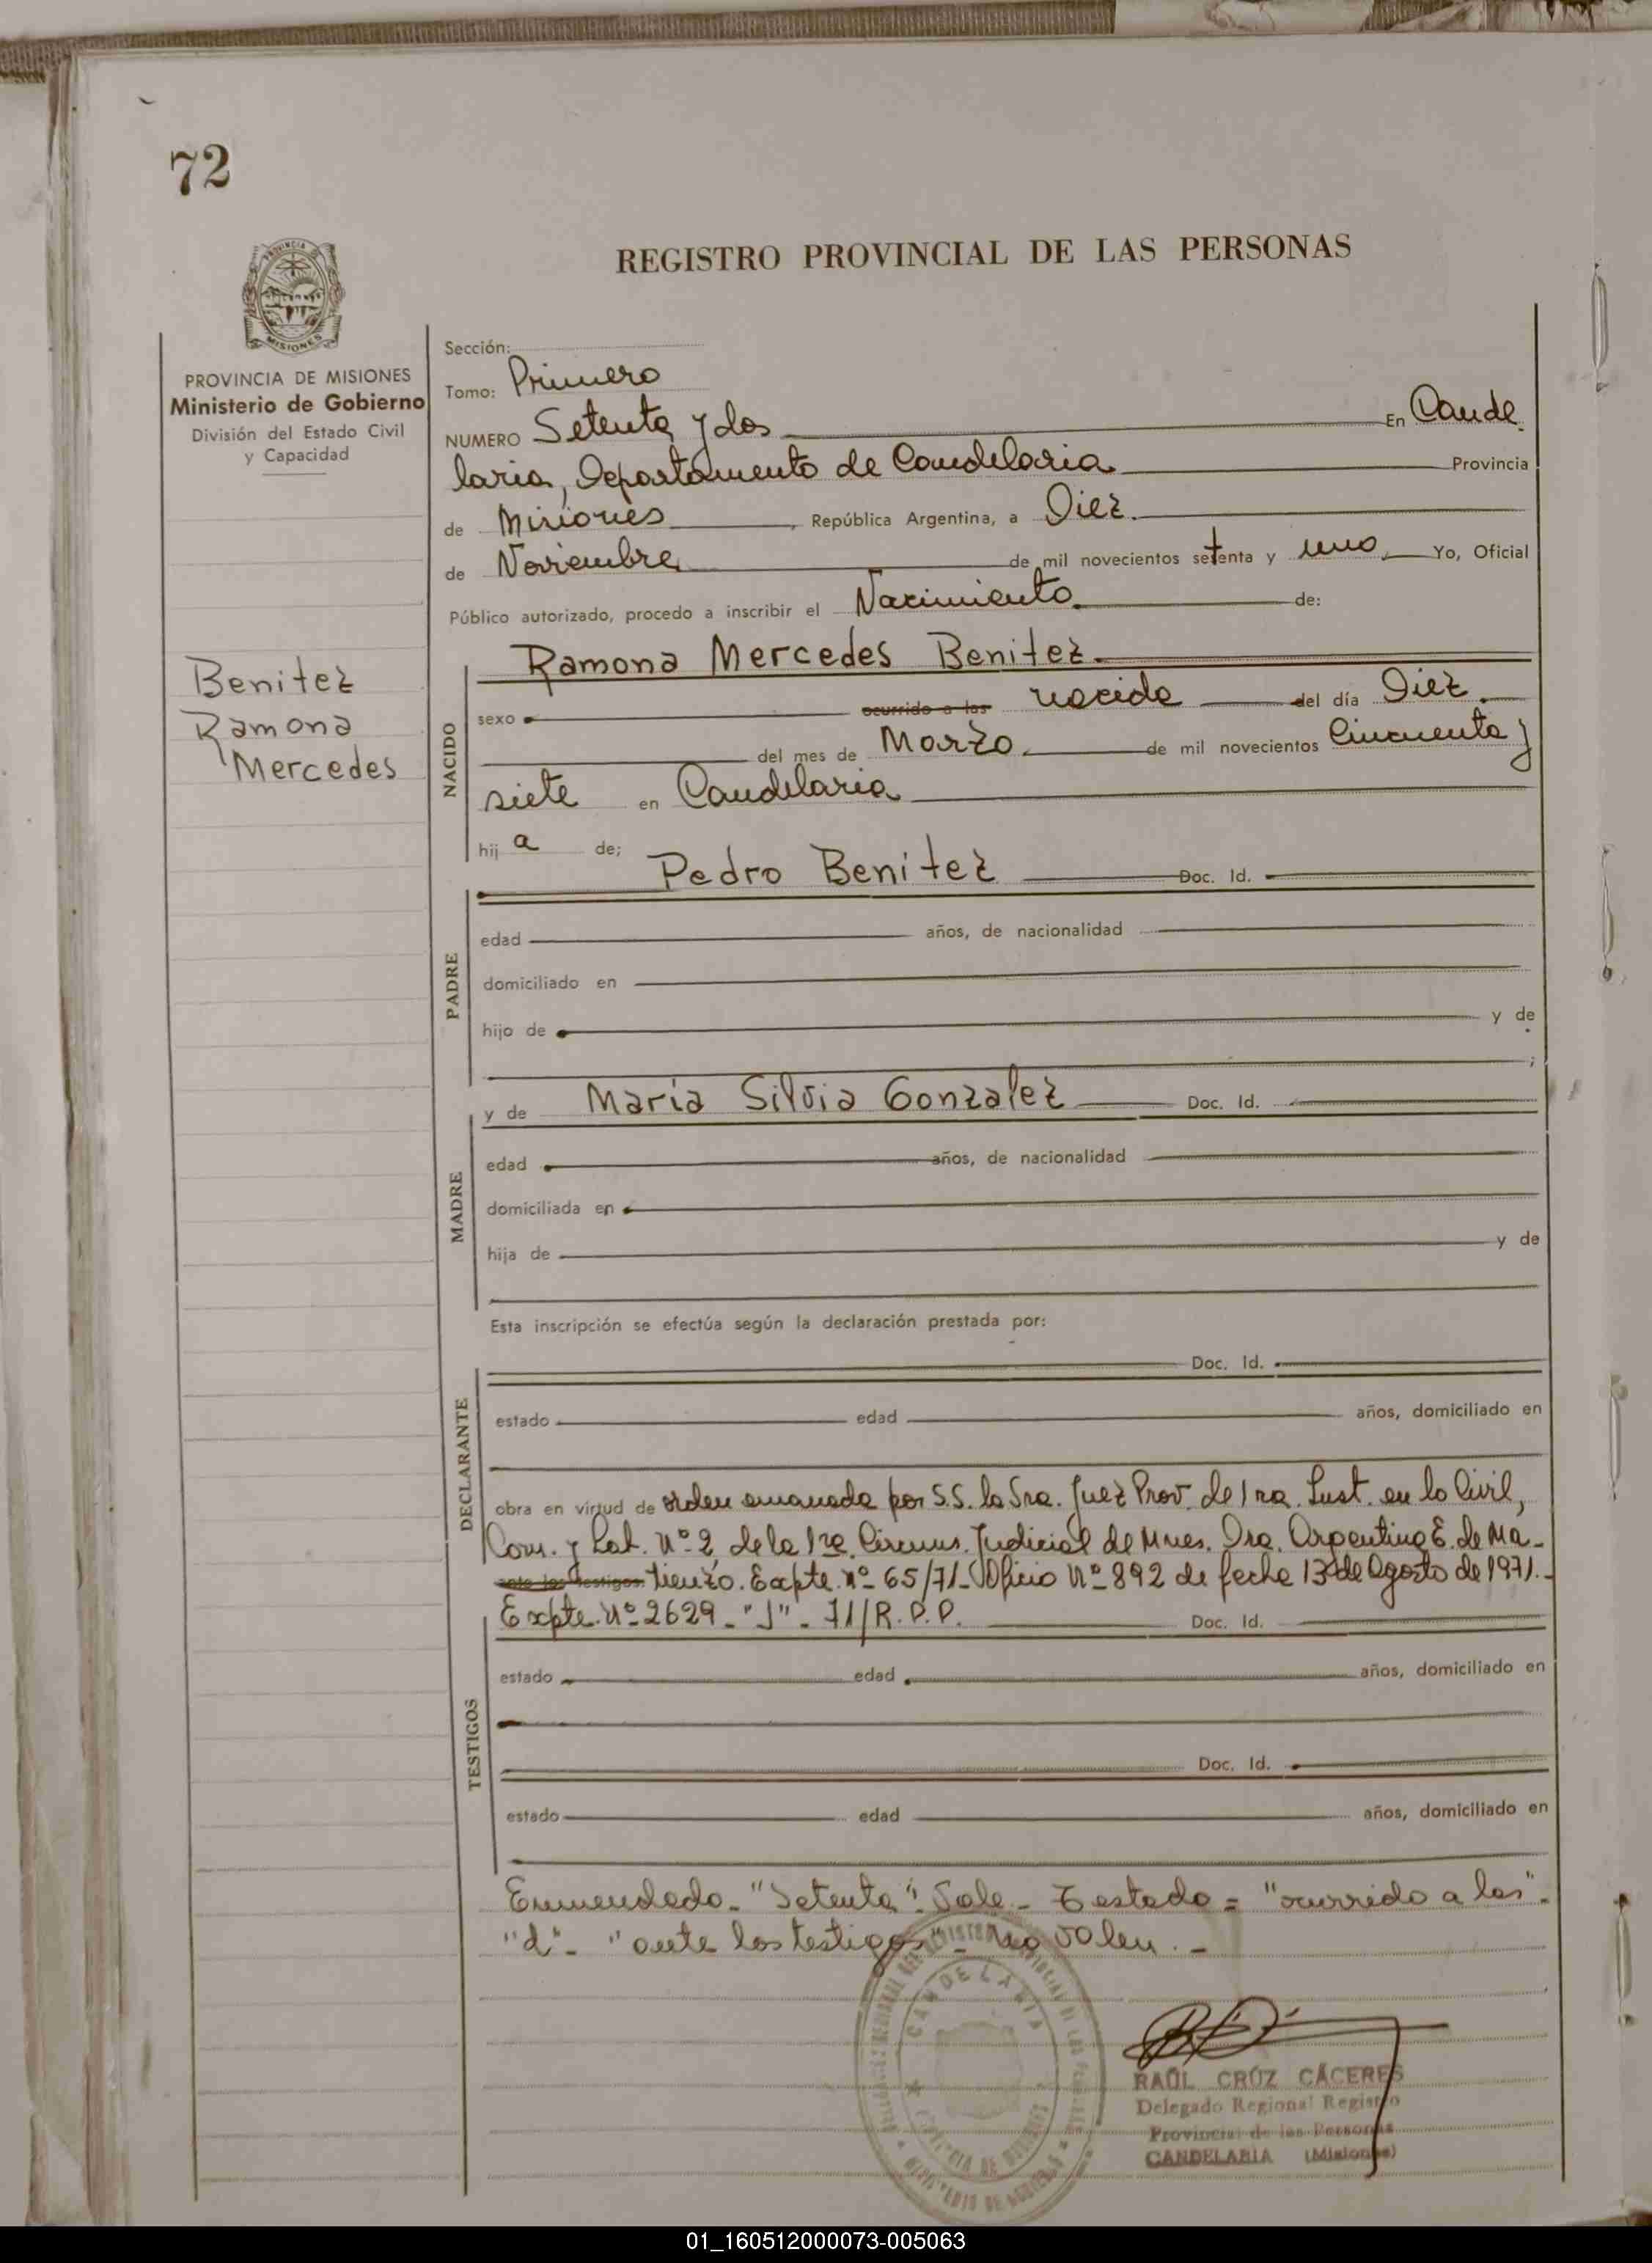 72
REGISTRO PROVINCIAL DE LAS PERSONAS
PROVINCIA
MISIONES
PROVINCIA DE MISIONES
Ministerio de Gobierno
División del Estado Civil
y Capacidad
Benitez
Ramona
Mercedes
Sección:
Tomo: Primero
NUMERO Setenta y dos En Cande
laria, Departamento de Candelaria Provincia
de Misiones, República Argentina, a Diez
de Noviembre de mil novecientos setenta y uno Yo, Oficial
Público autorizado, procedo a inscribir el Nacimiento de:
NACIDO
Ramona Mercedes Benitez
sexo ocurrido a las nacida del día Diez
del mes de Marzo de mil novecientos Cincuenta y
siete en Candelaria
hij a de;
PADRE
Pedro Benitez Doc. Id.
edad años, de nacionalidad
domiciliado en
hijo de y de
;
MADRE
y de María Silvia Gonzalez Doc. Id.
edad años, de nacionalidad
domiciliada en
hija de y de
Esta inscripción se efectúa según la declaración prestada por:
DECLARANTE
Doc. Id.
estado edad años, domiciliado en
obra en virtud de orden emanada por S.S. la Sra. Juez Prov. de 1ra. Inst. en lo Civil,
Com. y Lab. Nº 2, de la 1ra. Circuns. Judicial de Mnes. Dra. Argentina E. de Ma-
ante los testigos tienzo. Expte. nº 65/71 - Oficio Nº 892 de fecha 13 de Agosto de 1971.-
Expte. Nº 2629 - "J" - 71/R.P.P. Doc. Id.
TESTIGOS
estado edad años, domiciliado en
Doc. Id.
estado edad años, domiciliado en
Enmendado - "Setenta" Vale - Testado = "ocurrido a las" -
"d" - "ante los testigos" - No valen. -
CANDELARIA
RAÚL CRÚZ CÁCERES
Delegado Regional Registro
Provincial de las Personas
CANDELARIA (Misiones)
01_160512000073-005063